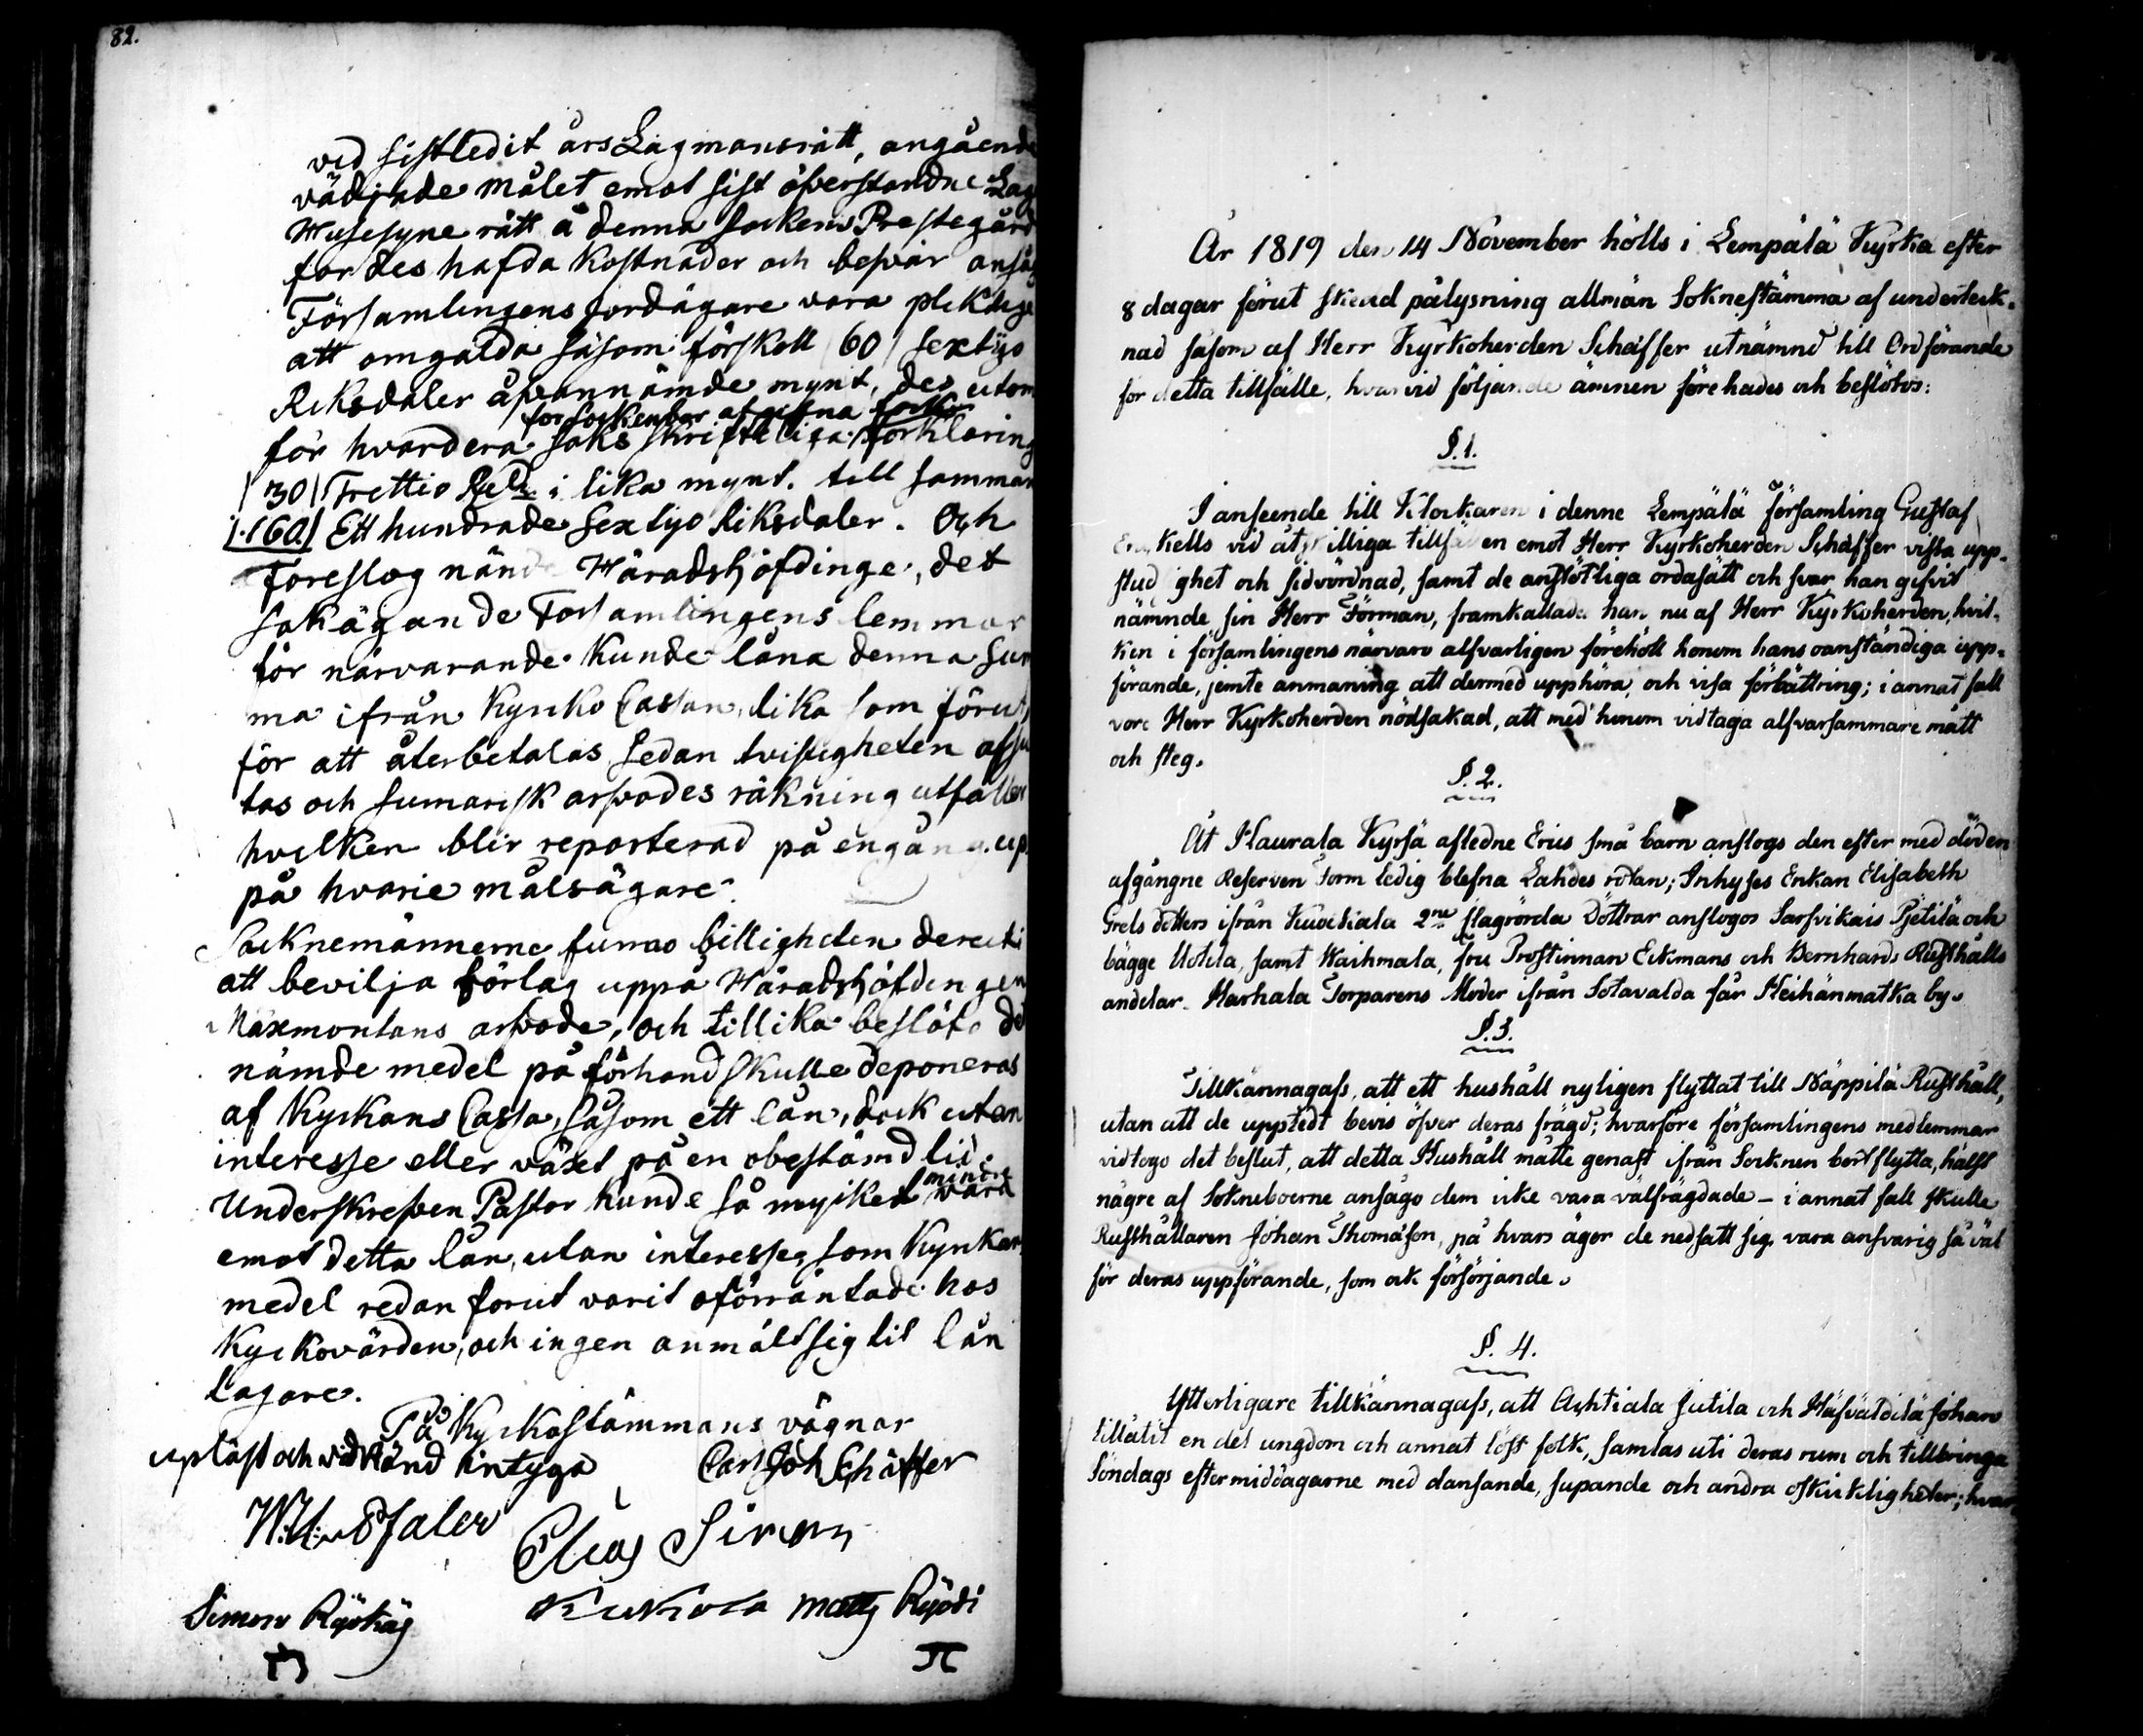 82.
ved sistledit års Lagmansrätt, angående
vädjade målet emot sist öfverståndne Lag
Husesyne rätt å denna Sockens Prestegård
for des hafda kostnader och besvär ansåg
Församlingens jordägare vara pliktige
att omgälda såsom förskott (60) sextijo
Riksdaler åfvannämde mynt, des utom
for sockenbor afgifna
för hvardera saks skrifteliga förklaring
(30) Trettio Rd. i lika mynt. till samman
(160) Ett hundrade Sextijo Riksdaler. Och
föreslog Häradshöfdinge, det
sakägande Församlingens lemmar
för närvarande kunde låna denna Sum
ma ifrån Kyrko Cassan, lika som förut,
för att återbetalas sedan tvistigheten afslu
tas och sumarisk arfvodes räkning utfaller
hvilken blir reporterad på en gång up
på hvarie målsägare.
Socknemännerne funno billigheten deruti
att bevilja förlag uppå Häradshöfdingen
Maxmontans arfvode, och tillika beslöto
nämde medel på förhand skulle deponeras
af Kyrkans Cassa, såsom ett lån, dock utan
interesse eller växt på en obestämd tid.
mindre
Underskrefven Pastor kunde så myiket vara
emot detta lån, utan interesse, som Kyrkans
medel redan forut varit oförräntade hos
Kyrkovärden, och ingen anmält sig til lån
tagare.
På Kyrkostämmans vägnar
upläst och vidkänd intyga Carl Joh Schäffer
Elias Simon
Simon Ryökäs Kukola Matts Ryödi
År 1819 den 14 November hölls i Lempälä Kyrka efter
8 dagar förut skedd pålysning allmän Soknestämma af underteck-
nad såsom af Herr Kyrkoherden Schäffer utnämnd till Ordförande
för detta tillfälle, hvarvid följande ämnen förehades och beslötos:
§. 1.
I anseende till Klockaren i denne Lempälä församling Gustaf
Enkells vid åtskilliga tillfällen emot Herr Kyrkoherden Schäffer vista upp-
studighet och sidvördnad, samt de anstötliga ordasätt och svar han gifvit
nämnde sin Herr Förman, framkallades han nu af Herr Kyrkoherden, hvil-
ken i församlingens närvaro alfvarligen förehöll honom hans oanständiga upp-
förande, jemte anmaning att dermed upphöra och visa förbättring; i annat fall
vore Herr Kyrkoherden nödsakad, att med honom vidtaga alfvarsammare mått
och steg.
§. 2.
Åt Haurala Kyrfä afledne Erics små barn anslogs den efter med döden
afgångne Reserven Torm ledig blefna Lahdes rotan; Inhyses Enkan Elisabeth
Grels dotters ifrån Kuockiala 2ne Döttrar anslogos Sarfvikais Pjetilä och
bägge Uotila, samt Waihmala, fru Prostinnan Eckmans och Bernhards Rusthålls
andelar. Harhala Torparens Moder ifrån Sotavalda får Heihänmatka by.
§. 3.
Tillkännagafs, att ett hushåll nyligen flyttat till Näppilä Rusthåll,
utan att de uppledt bevis öfver deras frägd; hvarföre församlingens medlemmar
vidtogo det beslut, att detta Hushåll måtte genast ifrån Socknen bortflytta, hälst
någre af Sokneboerne ansågo dem icke vara välfrägdade - i annat fall skulle
Rusthållaren Johan Thomason, på hvars ägor de nedsatt sig, vara ansvarig så väl
för deras uppförande, som ock försörjande.
§. 4.
Ytterligare tillkännagafs, att Achtiala Jutila och Johan
tillåtit en del ungdom och annat löst folk, samlas uti deras rum och tillbringa
Söndags eftermiddagarne med dansande, supande och andra oskickligheter; hvar